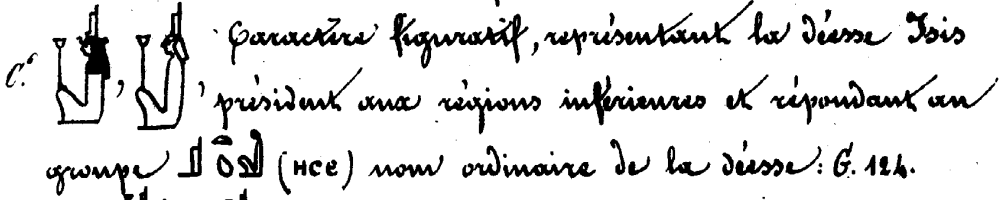 C.e , , Caractère figuratif, représentant la déesse Isis
président aux régions inférieures et répondant au
groupe (ⲏⲥⲉ) nom ordinaire de la déesse: G. 124.